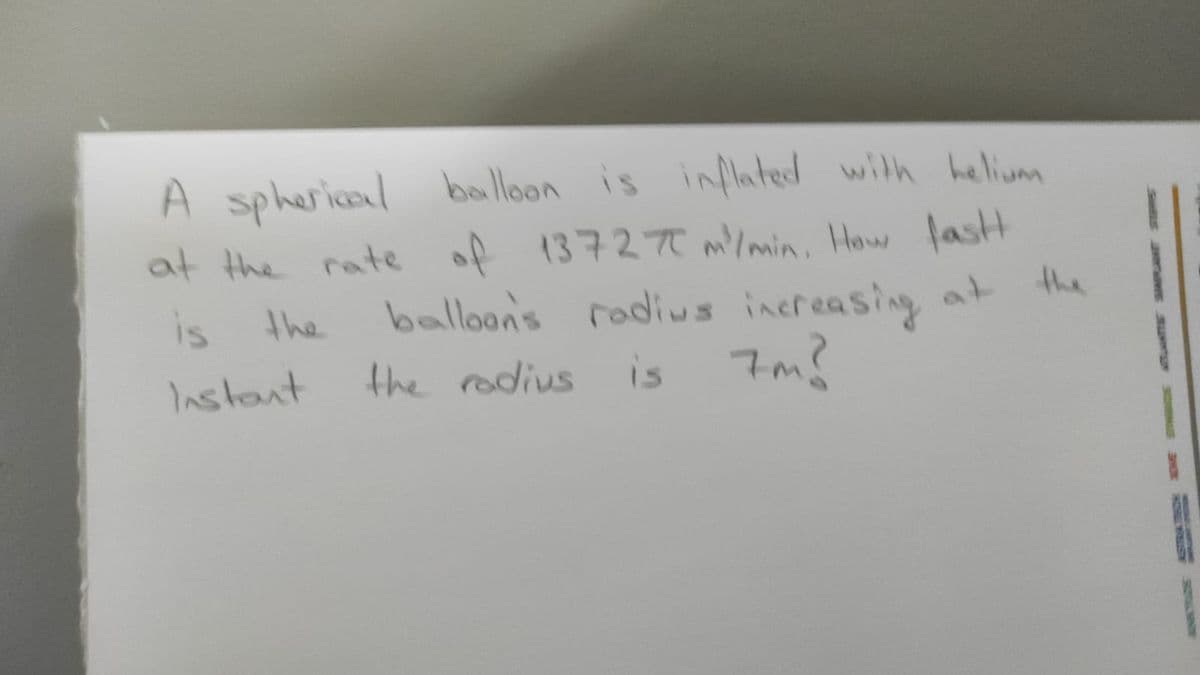 A spherical balloon is inflated with helium
at the rate of 1372π m³/min. How fastt
is the balloon's radius increasing at the
Instant the radius is 7m?